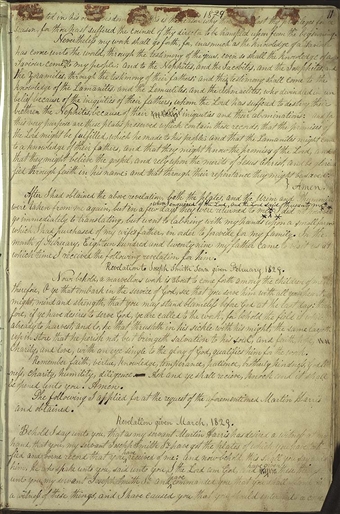 1829
11
Nevertheless my work shall go forth, for, inasmuch as the knowledge of a
Savior has come unto the world, through the testimony of the Jews, even so shall the knowledge of a
Savior come to my people: and to the Nephites, and the Jacobites, and the Josephites, and
the Zoramites, through the testimony of their fathers; and this testimony shall come to the
knowledge of the Lamanites, and the Lemuelites and the Ishmaelites, who dwindled in un-
belief because of the iniquities of their fathers, whom the Lord has suffered to destroy their
brethren the Nephites, because of their iniquities and their abominations: and for
this very purpose are these plates preserved which contain these records, that the promises of
the Lord might be fulfilled, which he made to his people: and that the Lamanites might come
to a knowledge of their fathers, and that they might know the promises of the Lord, and
that they may believe the gospel and rely upon the merits of Jesus Christ, and be glori-
fied through faith in his name; and that through their repentance they might be saved:
Amen.
After I had obtained the above revelation, both the plates, and the Urim and
were taken from me again, but in a few days they were returned to me,
go immediately to translating, but went to laboring with my hands upon a small farm
which I had purchased of my wife's father, in order to provide for my family. In the
month of February, Eighteen hundred and twenty nine my father came to visit us at
which time I received the following revelation for him.
Revelation to Joseph Smith Senr given February 1829.
Now behold, a marvelous work is about to come forth among the children of men,
therefore, O ye that embark in the service of God, see that ye serve him with all your heart,
might, mind and strength, that you may stand blameless before God at the last day: There-
fore, if ye have desires to serve God, ye are called to the work, for behold, the field is white
already to harvest, and lo, he that thrusteth in his sickle with his might, the same layeth
up in store that he perish not, but bringeth salvation to his soul, and faith, hope
charity, and love, with an eye single to the glory of God, qualifies him for the work.
Remember, faith, virtue, knowledge, temperance, patience, brotherly kindness, godli-
ness, charity, humility, diligence.— Ask and ye shall receive, knock and it shall
be opened unto you: Amen.
The following I applied for at the request of the forementioned Martin Harris
and obtained.
Revelation given March, 1829.
Behold I say unto you, that as my servant Martin Harris has desired a witness at my
hand, that you, my servant Joseph Smith Jr have got the plates of which you have testi-
fied and bore record that you have received of me: and now behold, this shall you say unto
him, he who spake unto you said unto you, I the Lord am God, and have given these things
unto you, my servant Joseph Smith Jr and have commanded you that you shall stand as
a witness of these things, and I have caused you that you should enter into a covenant